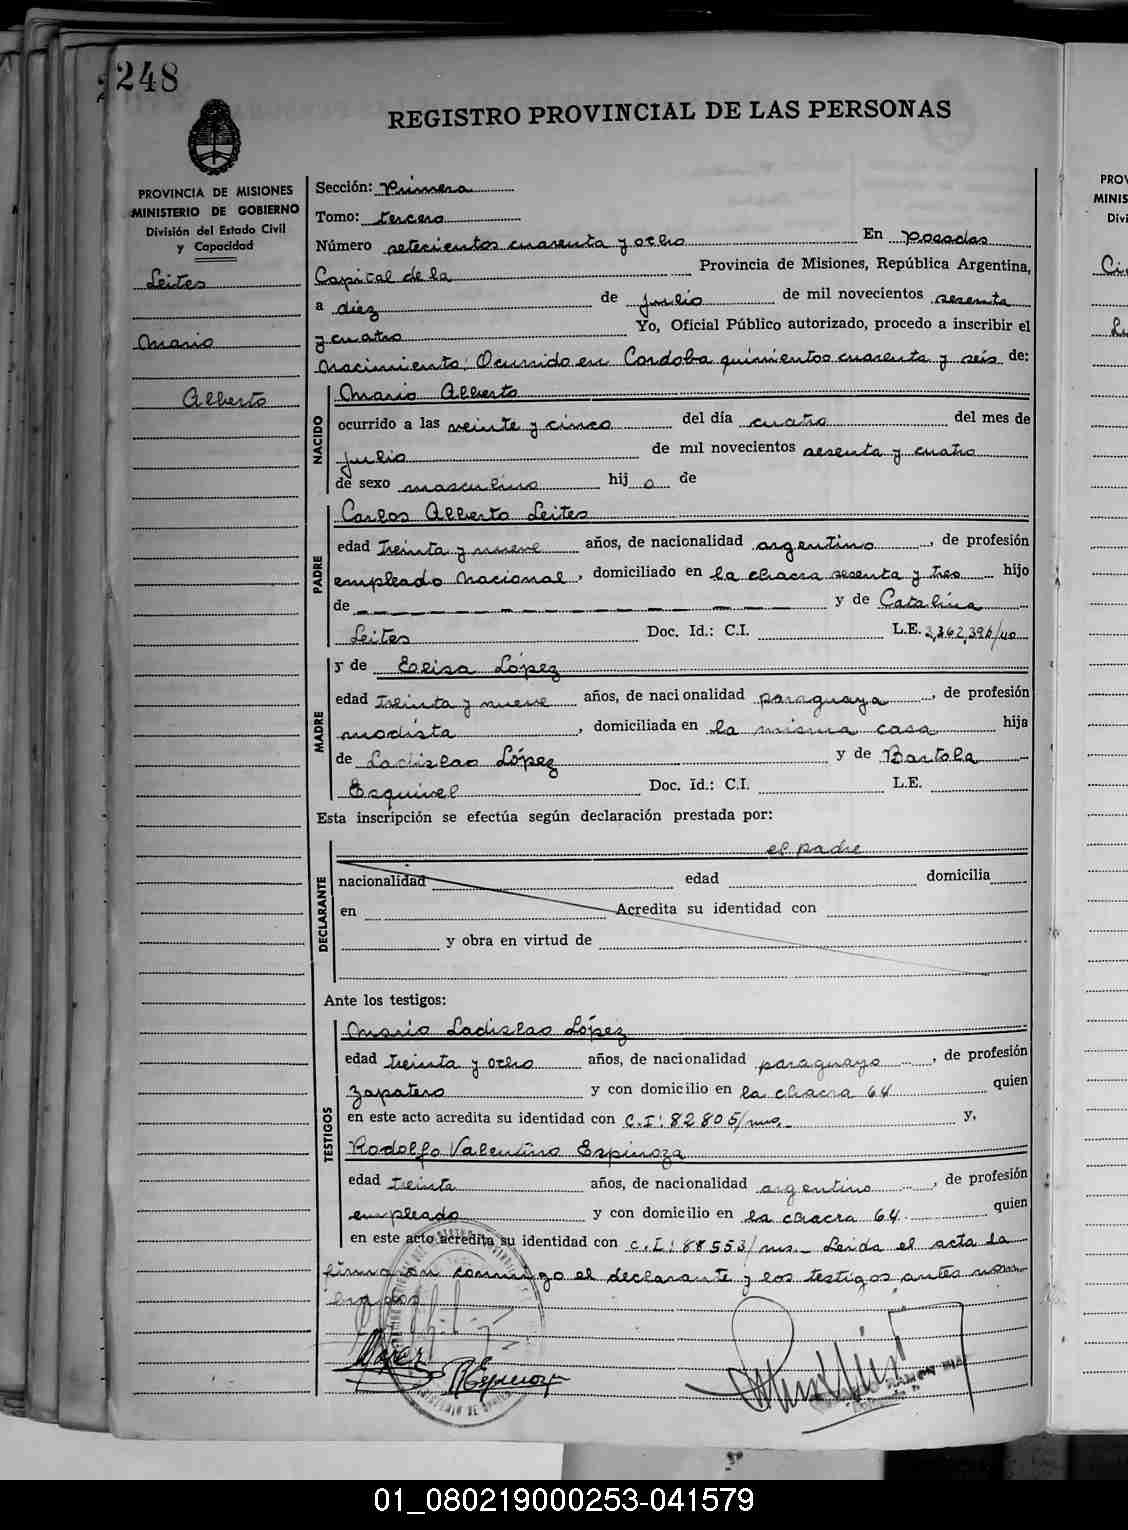 248
REGISTRO PROVINCIAL DE LAS PERSONAS
PROVINCIA DE MISIONES
MINISTERIO DE GOBIERNO
División del Estado Civil
y Capacidad
Leites
Mario
Alberto
Sección: Primera
Tomo: tercero
Número setecientos cuarenta y ocho En Posadas
Capital de la Provincia de Misiones, República Argentina,
a diez de julio de mil novecientos sesenta
y cuatro Yo, Oficial Público autorizado, procedo a inscribir el
Nacimiento: Ocurrido en Cordoba quinientos cuarenta y seis de:
NACIDO
Mario Alberto
ocurrido a las veinte y cinco del día cuatro del mes de
julio de mil novecientos sesenta y cuatro
de sexo masculino hijo de
PADRE
Carlos Alberto Leites
edad treinta y nueve años, de nacionalidad argentino, de profesión
empleado Nacional, domiciliado en la chacra sesenta y tres hijo
de y de Catalina
Leites Doc. Id.: C.I. L.E.
MADRE
y de Elisa López
edad treinta y nueve años, de nacionalidad paraguaya, de profesión
modista, domiciliada en la misma casa hija
de Ladislao López y de Bartola
Esquivel Doc. Id.: C.I. L.E.
Esta inscripción se efectúa según declaración prestada por:
DECLARANTE
el padre
nacionalidad edad domicilia
en Acredita su identidad con
y obra en virtud de
Ante los testigos:
TESTIGOS
Mario Ladislao López
edad treinta y ocho años, de nacionalidad paraguayo, de profesión
zapatero y con domicilio en la chacra 64 quien
en este acto acredita su identidad con C.I: 82805/mns. y,
Rodolfo Valentino Espinoza
edad treinta años, de nacionalidad argentino, de profesión
empleado y con domicilio en la chacra 64 quien
en este acto acredita su identidad con C.I: 88553/mns. Leida el acta la
firmaron conmigo el declarante y los testigos antes nom-
brados
01_080219000253-041579